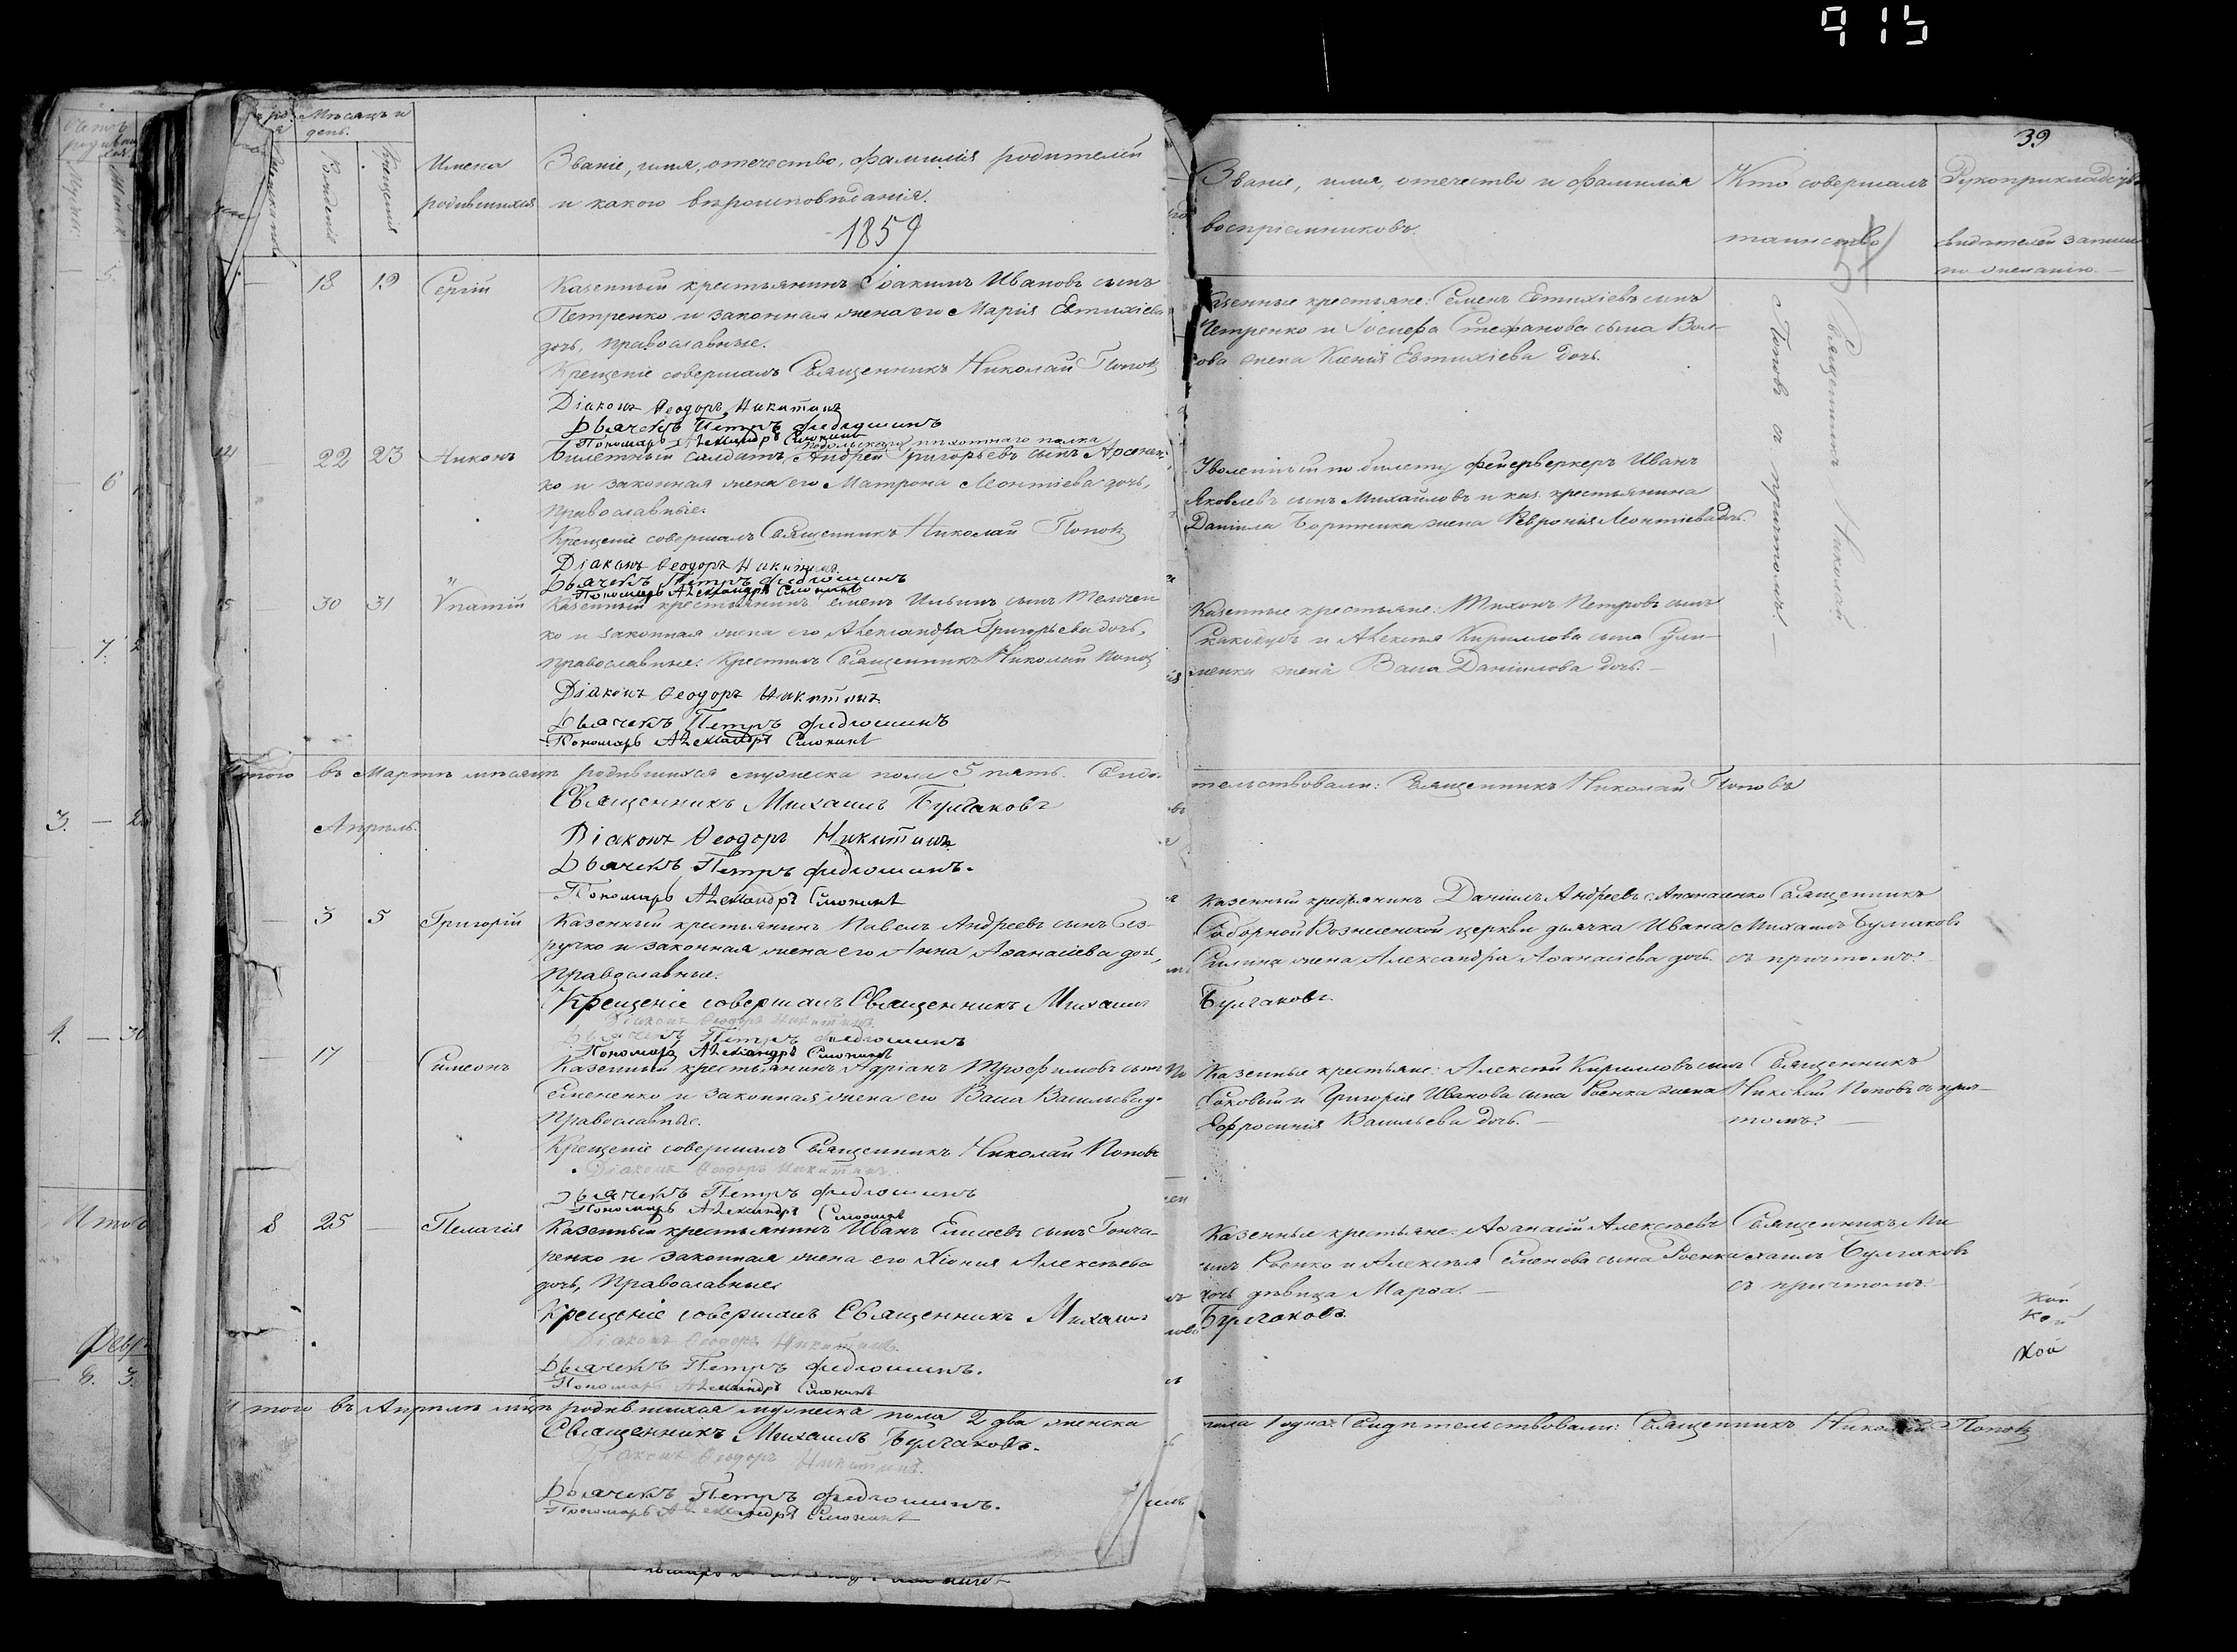 915
39
Мѣсяцъ и
день.
Рожденія
Крещенія
Имена
родившихся
Званіе, имя, отечество, фамилія родителей
и какого вѣроисповѣданія.
1859
Званіе, имя, отечество и фамилія
воспріемниковъ.
Кто совершалъ
таинство
Рукоприкладство
свидѣтелей записи
по желанію.
18 19 Сергій
Казенный крестьянинъ Іоакимъ Ивановъ сынъ
Петренко и законная жена его Марія Евтихіева
дочь, православные.
Крещеніе совершалъ Священникъ Николай Поповъ
Діаконъ Ѳеодоръ Никитинъ
Дьячекъ Петръ Федюшинъ
Пономарь Александръ Слюнинъ
Казенные крестьяне: Семенъ Евтихіевъ сынъ
Петренко и Іосифа Стефанова сына Вол-
ова жена Ксенія Евтихіева дочь.
Священникъ Николай
Поповъ съ причтомъ.
14 22 23 Никонъ
Подольскаго пѣхотнаго полка
Билетный солдатъ Андрей Григорьевъ сынъ Арсенен-
ко и законная жена его Матрона Леонтіева дочь,
православные.
Крещеніе совершалъ Священникъ Николай Поповъ
Діаконъ Ѳеодоръ Никитинъ.
Дьячекъ Петръ Федюшинъ
Пономарь Александръ Слюнинъ
Уволенный по билету фейерверкеръ Иванъ
Яковлевъ сынъ Михайловъ и каз. крестьянина
Даніила Бортника жена Февронія Леонтіева дочь.
15 30 31 Ѵпатій
Казенный крестьянинъ Семенъ Ильинъ сынъ Телечен-
ко и законная жена его Александра Григорьева дочь,
православные. Крестилъ Священникъ Николай Поповъ
Діаконъ Ѳеодоръ Никитинъ
Дьячекъ Петръ Федюшинъ
Пономарь Александръ Слюнинъ
Казенные крестьяне: Тихонъ Петровъ сынъ
и Алексѣя Кириллова сына
менка жена Васса Даніилова дочь.
Итого въ Мартѣ мѣсяцѣ родившихся мужеска пола 5 пять. Свидѣ-
тельствовали: Священникъ Николай Поповъ
Священникъ Михаилъ Булгаковъ
Апрѣль.
Діаконъ Ѳеодоръ Никитинъ
Дьячекъ Петръ Федюшинъ.
Пономарь Александръ Слюнинъ
3 5 Григорій
Казенный крестьянинъ Павелъ Андреевъ сынъ Без-
ручко и законная жена его Анна Аѳанасіева дочь,
православные.
Крещеніе совершалъ Священникъ Михаилъ
Булгаковъ.
Діаконъ Ѳеодоръ Никитинъ
Дьячекъ Петръ Федюшинъ
Пономарь Александръ Слюнинъ
Казенный крестьянинъ Даніилъ Андреевъ Апанасенко
Соборной Вознесенской церкви дьячка Ивана
Силина жена Александра Аѳанасіева дочь.
Священникъ
Михаилъ Булгаковъ
съ причтомъ.
17 Симеонъ
Казенный крестьянинъ Адріанъ Трофимовъ сынъ
Семененко и законная жена его Васса Васильева д.
Православные.
Крещеніе совершалъ Священникъ Николай Поповъ
Діаконъ Ѳеодоръ Никитинъ
Дьячекъ Петръ Федюшинъ
Пономарь Александръ Слюнинъ
Казенные крестьяне: Алексѣй Кирилловъ сынъ
и Григорія Иванова сына Роенка жена
Евфросинія Васильева дочь.
Священникъ
Николай Поповъ съ прич-
томъ.
8 25 Пелагія
Казенный крестьянинъ Иванъ Елисеевъ сынъ Гонча-
ренко и законная жена его Хіонія Алексѣева
дочь, Православные.
Крещеніе совершалъ Священникъ Михаилъ
Булгаковъ.
Діаконъ Ѳеодоръ Никитинъ.
Дьячекъ Петръ Федюшинъ.
Пономарь Александръ Слюнинъ
Казенные крестьяне: Аѳанасій Алексѣевъ
сынъ Роенко и Алексѣя Семенова сына Роенка
дочь дѣвица Марѳа.
Священникъ Ми
хаилъ Булгаковъ
съ причтомъ.
Итого въ Апрѣлѣ мцѣ родившихся мужеска пола 2 два женска
пола 1 одна. Свидѣтельствовали: Священникъ Николай Поповъ
Священникъ Михаилъ Булгаковъ.
Діаконъ Ѳеодоръ Никитинъ.
Дьячекъ Петръ Федюшинъ.
Пономарь Александръ Слюнинъ